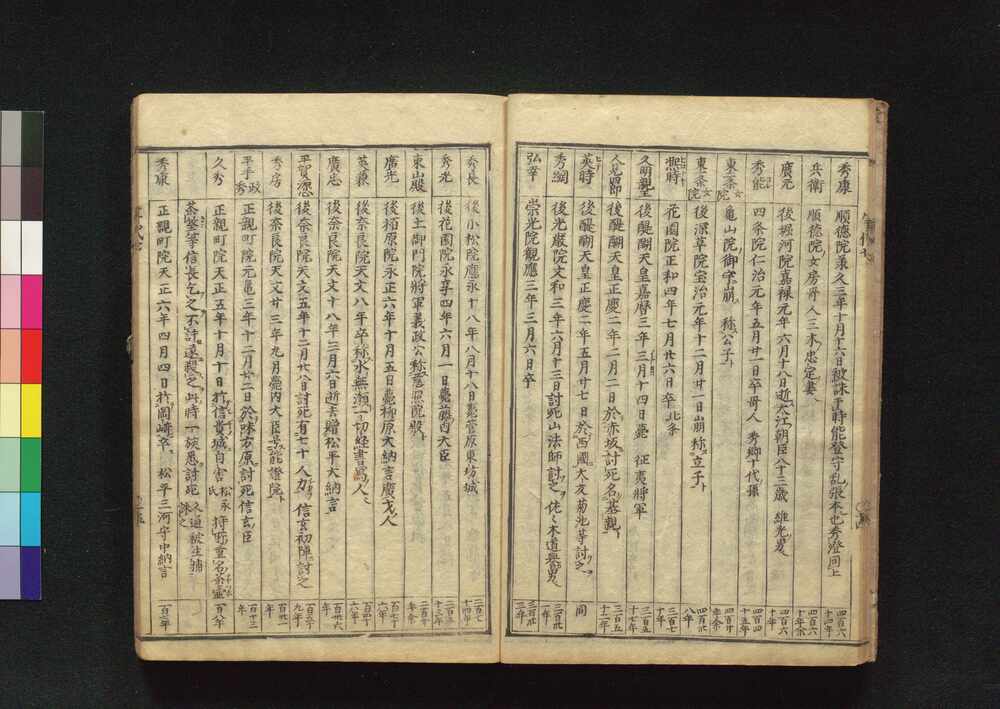 秀康 順徳院承久三年十月十六日被誅于時能登守乱張本也秀澄同上 四百六十四年
兵衛 順徳院女房哥人三木忠定妻 四百六十年余
廣元 後堀河院嘉禄元年六月十八日逝大江朝臣八十三歳 維光男 四百六十年
秀能 四条院仁治元年五月廿一日卒哥人 秀郷十代孫 四百四十五年
東条院 亀山院御宇崩称公子 四百廿年余
東条院 後深草院宝治元年十二月廿一日崩称立子 四百卅八年
凞時 花園院正和四年七月廿六日卒北条 三百七十年
久明親王 後醍醐天皇嘉暦三年三月十四日薨 征夷将軍 三百五十七年
人見四郎 後醍醐天皇正慶二年二月二日於赤坂討死名基親 三百五十二年
英時 後醍醐天皇正慶二年五月廿七日於西國大友菊池等討之 同
秀綱 後光厳院文和三年六月十三日討死山法師討之 佐々木道誉男 三百卅一年
弘幸 崇光院觀應三年三月六日卒 三百卅三年
秀長 後小松院應永十八年八月十八日薨菅原東坊城 二百七十四年
秀光 後花園院永享四年六月一日薨藤内大臣 二百五十三年
東山殿 後土御門院将軍義政公称慈照院殿 二百年余
廣光 後柏原院永正六年十月五日薨柳原大納言廣才人 百七十六年
英兼 後奈良院天文八年卒称水無瀬一切経書写人 百四十六年
廣忠 後奈良院天文十八年三月六日逝去贈松平大納言 百卅六年
平賀 後奈良院天文五年十二月廿八日討死有七十人力 信玄初陣討之 百五十九年
秀房 後奈良院天文廿三年九月薨内大臣 證院 百卅一年
平手政秀 正親町院元亀三年十二月廿二日於味方原討死信玄臣 百十三年
久秀 正親町院天正五年十月十日於信貴城自害 松永氏 持 重名茶壷 百八年
茶 等信長乞之不許遂殺之此時一族悉討死 久通被生捕誅之
秀康 正親町院天正六年四月四日於岡崎卒 松平三河守中納言 百七年